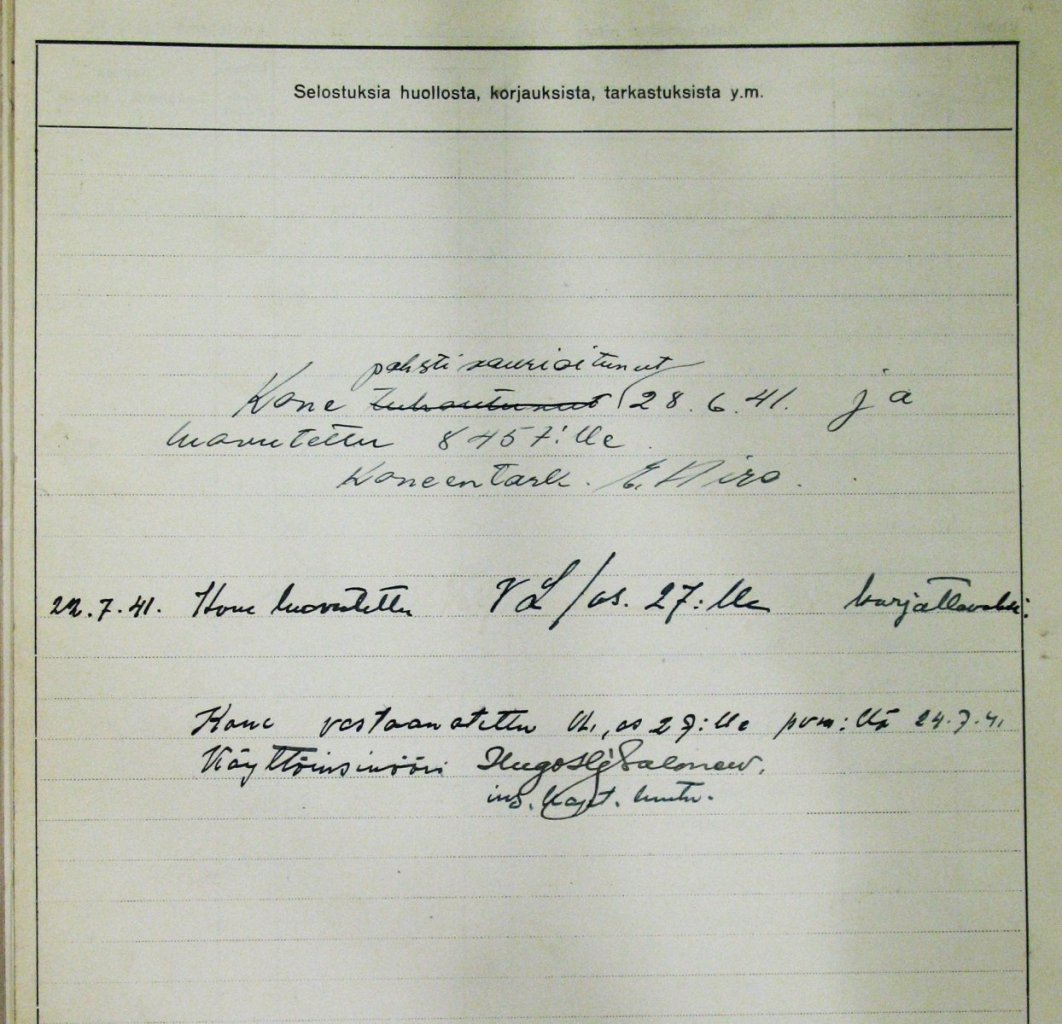 Selostuksia huollosta, korjauksista, tarkastuksista y.m.
pahsti vaurioitunut
Kone tuhoutunut 28.6.41. ja
luovutettu 8457:lle.
Koneentark. E. Hiro.
22.7.41. Kone luovutettu VL/os. 27:lle korjattavaksi.
Kone vastaanotettu VL, os 27:lle pvm:llä 24.7.41
Käyttöinsinööri Hugo Hj Salonen.
ins. kapt. luutn.